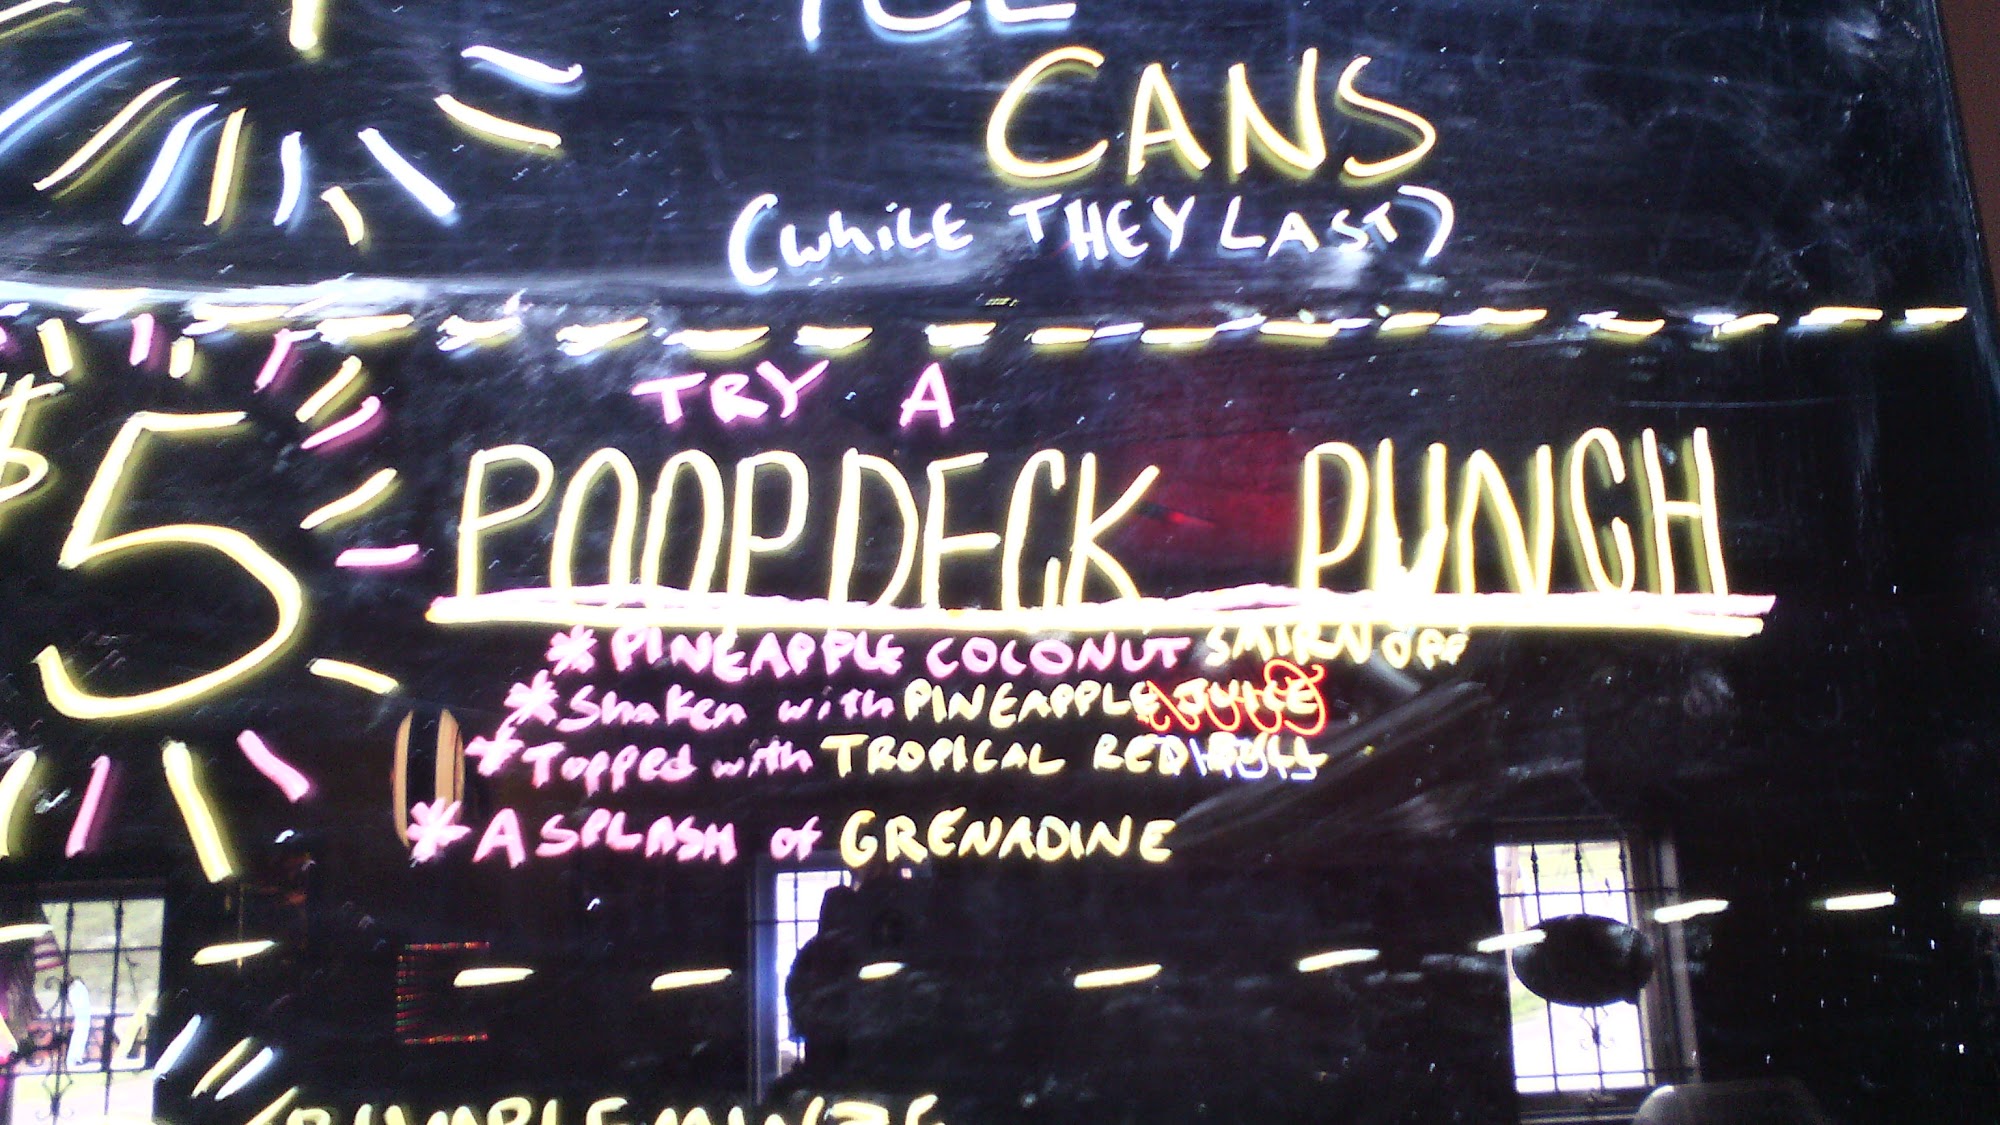 ICE
CANS
(WhiLE THEY LAST)
TRY A
$5 POOPDECK PUNCH
* PINEAPPLE COCONUT SMIRNOFF
* Shaken with PINEAPPLE JUICE
* Topped with TROPICAL RED BULL
* A SPLASH of GRENADINE